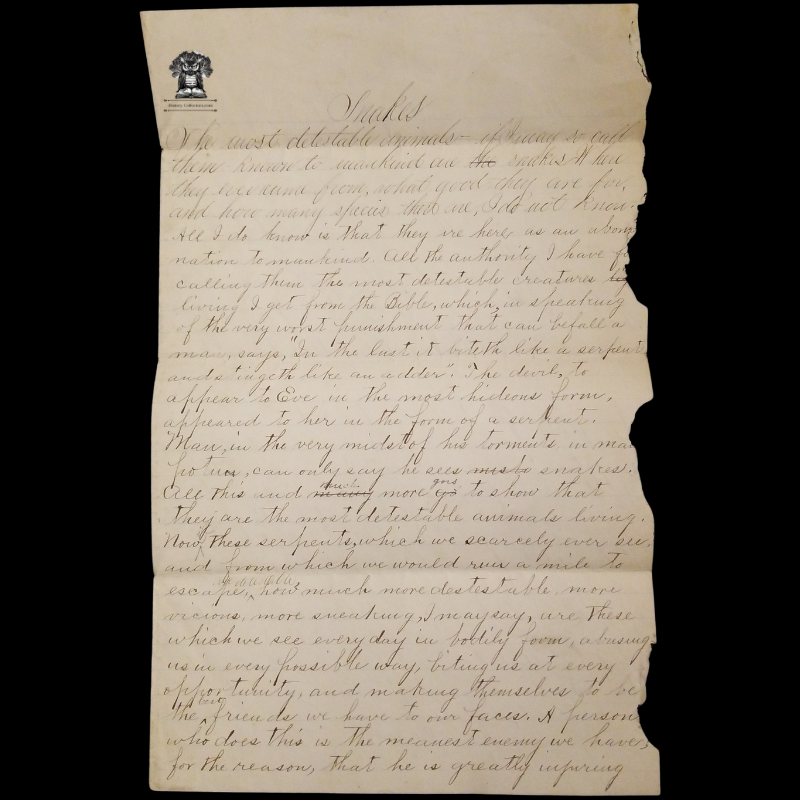 History Collections.com
Snakes
The most detestable animals - if I may so call
them - known to mankind are the snakes.
they ever came from, what good they are for,
and how many species there are, I do not know.
All I do know is that they are here as an abomi
nation to mankind. All the authority I have fo
calling them the most detestable creatures
living I get from the Bible, which, in speaking
of the very worst punishment that can befall a
man, says, "In the last it biteth like a serpent
and stingeth like an adder". The devil, to
appear to Eve in the most hideous form,
appeared to her in the form of a serpent.
Man, in the very midst of his torments in
can only say he sees snakes.
All this and many much more go goes to show that
they are the most detestable animals living.
Now, these serpents, which we scarcely ever see
and from which we would run a mile to
escape, how much more destestable, more
vicious, more sneaking, I may say, are these
which we see every day in bodily form, abusing
us in every possible way, biting us at every
opportunity, and making themselves to be
the best friends we have to our faces. A person
who does this is the meanest enemy we have,
for the reason, that he is greatly injuring